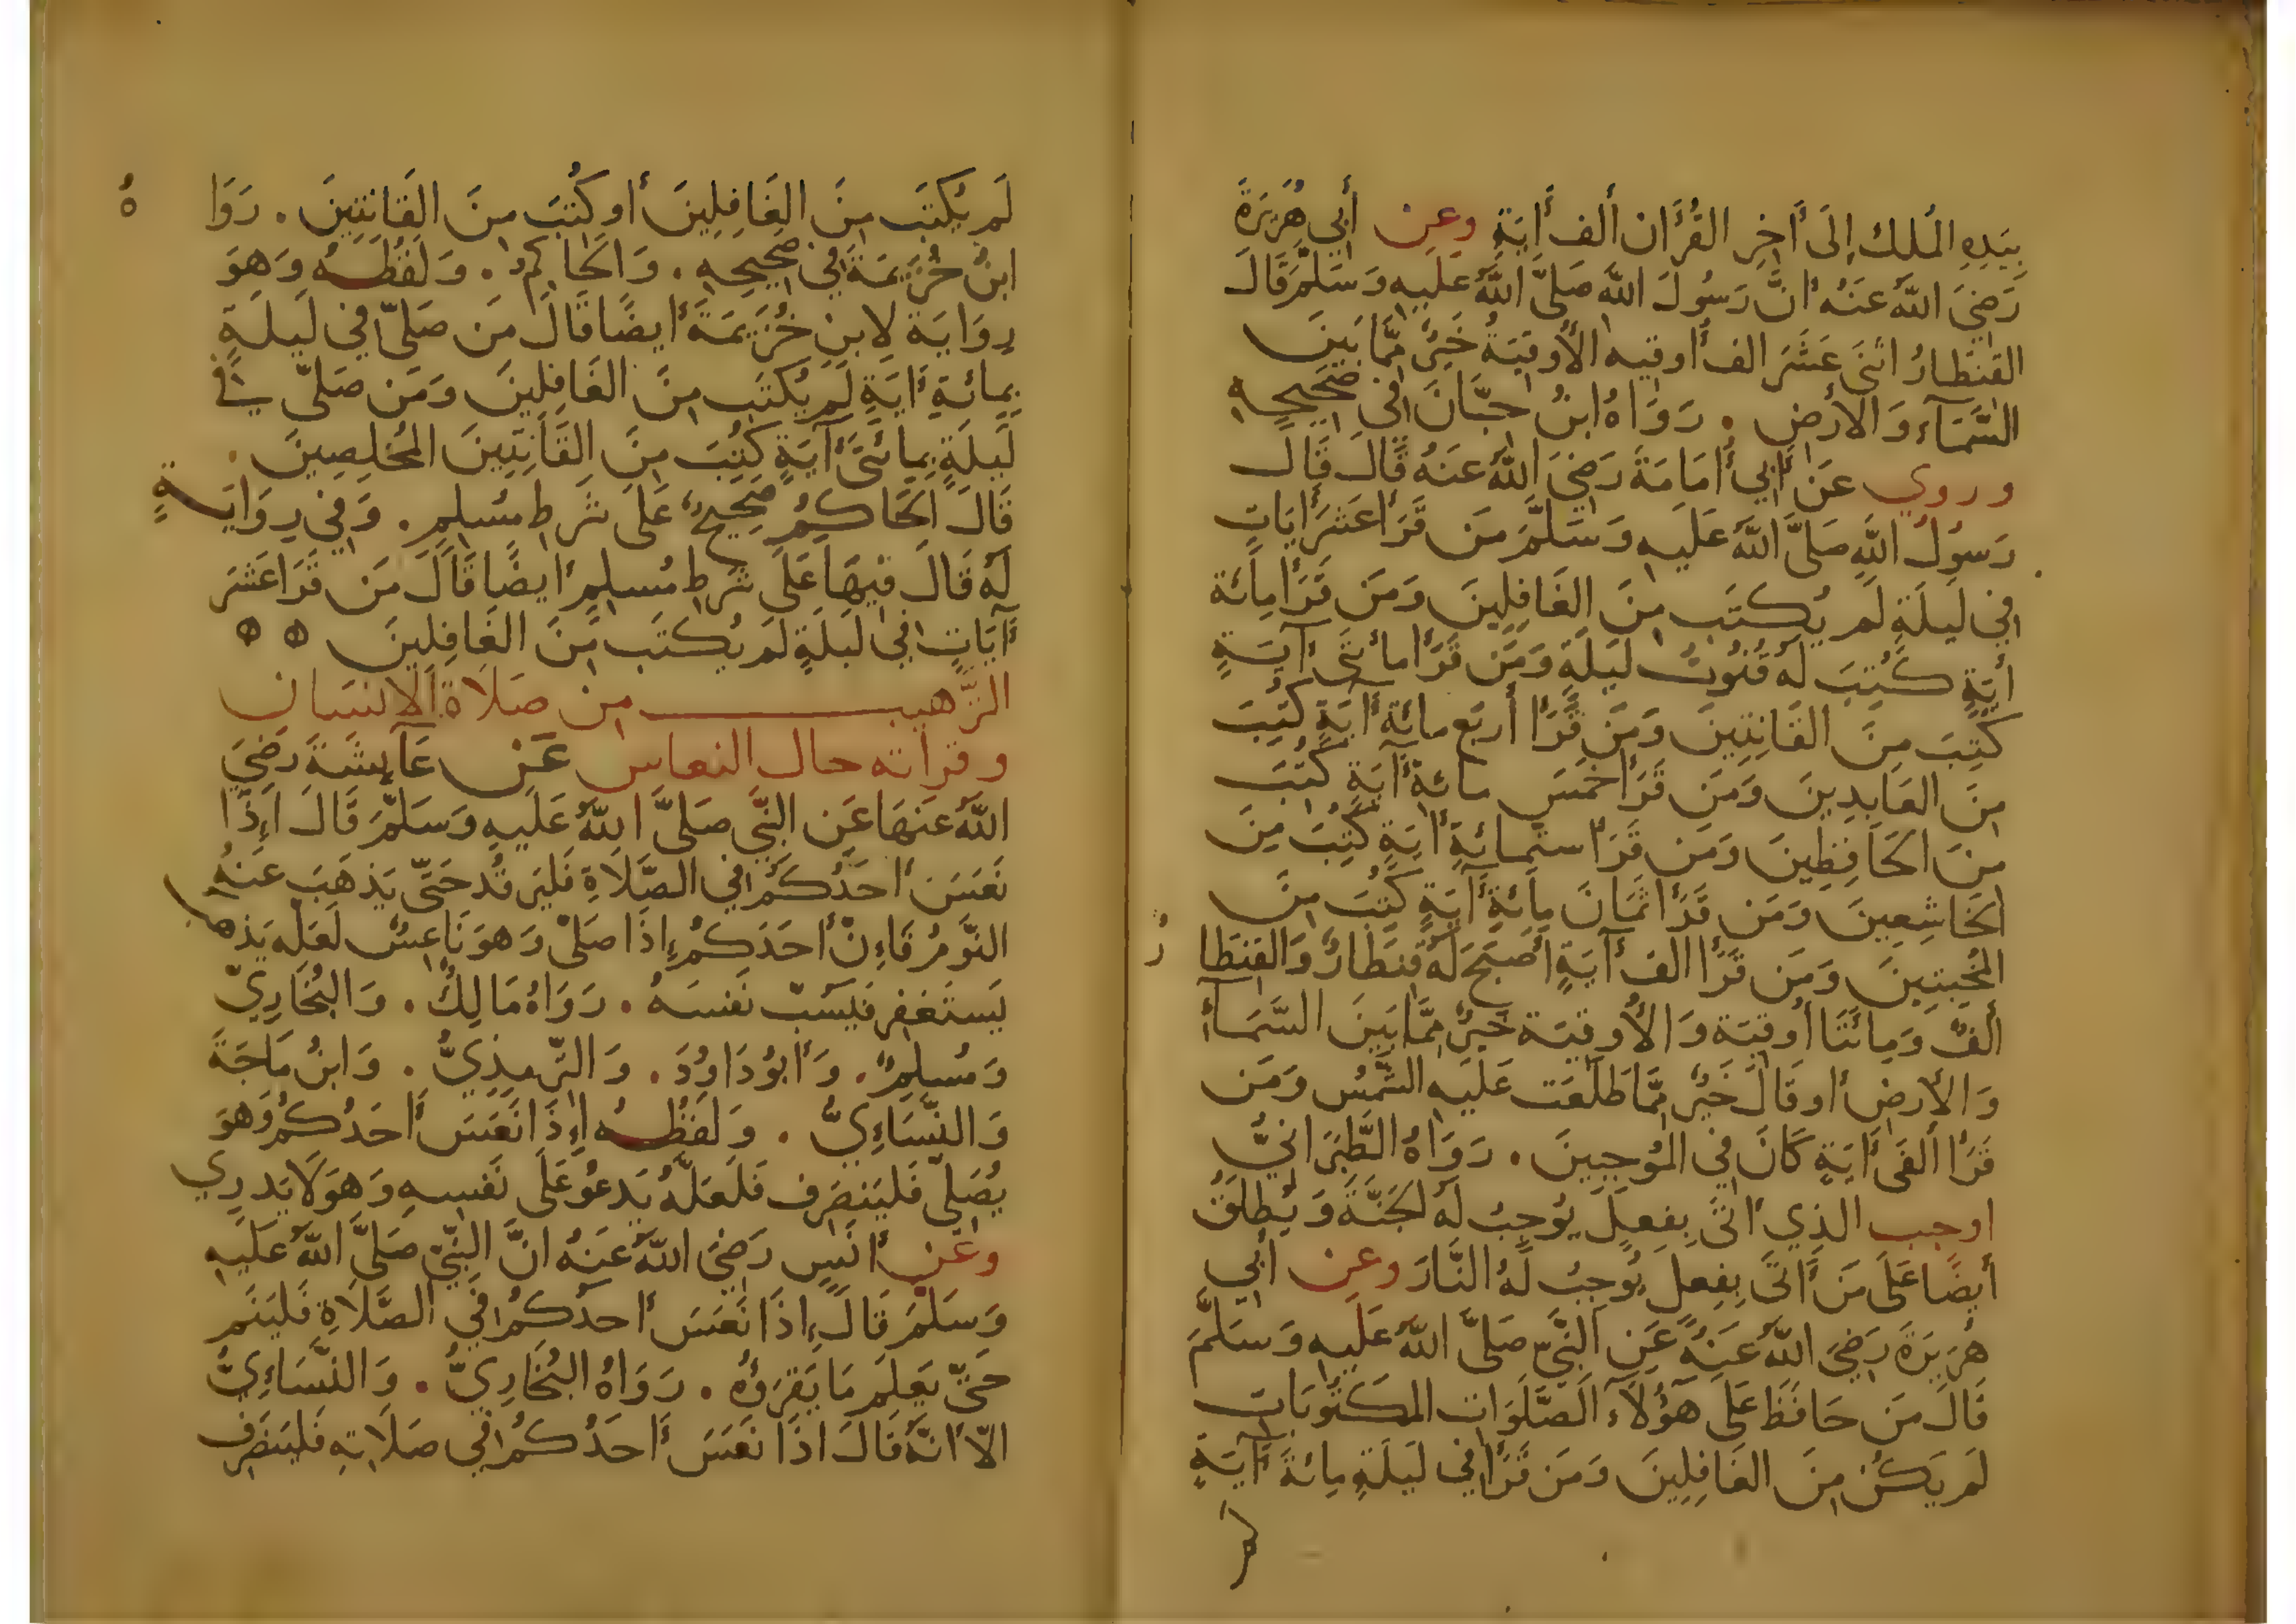 بِيَدِهِ الْمُلك إِلَى أَخِرِ القُرْأَن أَلف أَيَةٍ وعن أَبِي هُرَيرَةَ
رَضِيَ اللَّهُ عَنهُ انَّ رَسُولَ اللَّه صَلَّى اللَّهُ عَلَيهِ وَسَلَّمَ قَالَ
القِنطَارُ اثنَى عَشَرَ الف أُوقيه الأُوقيَةُ خَيرٌ مِّمَّا بَينَ
السَّمَآءِ وَالأَرضِ . رَوَاهُ ابنُ حِبَّانَ فِي صَحِيحِهِ
وروي عَن أَبِي أُمَامَةَ رَضِيَ اللَّهُ عَنهُ قَالَ قَالَ
رَسُولُ اللَّهِ صَلَّى اللَّهُ عَلَيهِ وَسَلَّمَ مَن قَرَأَ عَشَرَ أَيَاتٍ
فِي لَيلَةٍ لَم يُكتَب مِنَ الغَافِلِينَ وَمَن قَرَأَ مِائَة
أَيَةٍ كُتِبَ لَهُ قُنُوتُ لَيلَةٍ وَمَن قَرَأَ مائتَى أَيَةٍ
كُتِبَ مِنَ القَانِتِينَ وَمَن قَرَأَ أَربَع مائَة أَيَةٍ كُتِبَ
مِنَ العَابِدِينَ وَمَن قَرَأَ خَمسَ مائةِ أَيَةٍ كُتِبَ
مِنَ الحَافِظِينَ وَمَن قَرَأَ ستمِائَةِ أَيَةٍ كُتِبَ مِنَ
الخَاشِعِينَ وَمَن قَرَأَ ثَمَانَ مِائَةِ أَيَةٍ كُتِبَ مِنَ
المُخبِتِينَ وَمَن قَرَأَ الفَ أَيَةٍ أَصبَحَ لَهُ قِنطَارٌ وَالقِنطَارُ
أَلفٌ وَمِائَتَا أُوقيَة وَالأُوقِيَة خَيرٌ مِمَّا بَينَ السَّمَآءِ
وَالأَرضِ أَو قَالَ خَيرٌ مِّمَّا طَلَعَت عَلَيهِ الشَّمسُ وَمَن
قَرَأَ أَلفَى أَيَةٍ كَانَ فِي المُوجِبِينَ . رَوَاهُ الطَّبَرَانِيُّ
اوجب الذِي اتَى بِفِعلٍ يُوجِبُ لَهُ لجَنَّةَ وَيُطلَقُ
أَيضًا عَلَى مَن أَتَى بِفِعلٍ يُوجِبُ لَهُ النَّارَ وعن أَبِي
هُرَيرَةَ رَضِيَ اللَّهُ عَنهُ عَنِ النَّبِيِّ صَلَّى اللَّهُ عَلَيهِ وَسَلَّمَ
قَالَ مَن حَافَظَ عَلَى هَؤُلَآءِ الصَّلَوَاتِ المَكتُوبَاتِ
لَم يَكُن مِنَ الغَافِلِينَ وَمَن قَرَأَ فِي لَيلَةٍ مِائَةَ أَيَةٍ
لم
لَم يُكتَب مِنَ الغَافِلِينَ أَو كُتِبَ مِنَ القَانِتِينَ . رَوَاهُ
ابنُ خُزَيمَةَ فِي صَحِيحِهِ . وَالحَاكِمُ . وَلَفظُهُ وَهوَ
رِوَايَة لِابنِ خُزَيمَةَ أَيضًا قَالَ مَن صَلَّى فِي لَيلَةٍ
بِمِائَةِ أَيَةٍ لَم يُكتَب مِنَ الغَافِلِينَ وَمَن صَلَّى فِي
لَيلَةٍ بِمِائتَى أَيَةٍ كُتِبَ مِنَ القَانِتِينَ المُخلِصِينَ .
قَالَ الحَاكِمُ صَحِيحٌ عَلَى شَرطِ مُسلِمٍ . وَفِي رِوَايَةٍ
لَهُ قَالَ فِيهَا عَلَى شَرطِ مُسلِمٍ أَيضًا قَالَ مَن قَرَا عَشَرَ
أَيَاتٍ فِي لَيلَةٍ لَم يُكتَب مِنَ الغَافِلِينَ
الترهيب من صَلَاة الانسان
وقراته حال النعاس عَن عَآئِشَةَ رَضِيَ
اللَّهُ عَنهَا عَنِ النَّبِيِّ صَلَّى اللَّهُ عَلَيهِ وَسَلَّمَ قَالَ إِذَا
نَعَسَ أَحَدُكُم فِي الصَّلَاةِ فَليَرقُد حَتَّى يَذهَبَ عَنهُ
النَّومُ فَإِنَّ أَحَدَكُم إِذَا صَلَّى وَهوَ نَاعِسٌ لَعَلَّهُ يَذهب
يَستَغفِر فَيَسُبّ نَفسَهُ . رَوَاهُ مَالِكٌ . وَالبُخَارِيّ
وَمُسلِمٌ . وَأَبُو دَاوُدَ . وَالتِّرمِذِيُّ . وَابنُ مَاجَةَ
وَالنَّسَاءِيُّ . وَلَفظُهُ إِذَا نَعَسَ أَحَدُكُم وَهوَ
يُصَلِّي فَليَنصَرِف فَلَعَلَّهُ يَدعُو عَلَى نَفسِهِ وَهوَ لَا يَدرِي
وعن أَنَسٍ رَضِيَ اللَّهُ عَنهُ انَّ النَّبِيَّ صَلَّى اللَّهُ عَلَيهِ
وَسَلَّمَ قَالَ إِذَا نَعَسَ أَحَدُكُم فِي الصَّلَاةِ فَليَنَم
حَتَّى يَعلَمَ مَا يَقرَؤُه . رَوَاهُ البُخَارِيُّ . وَالنَّسَاءِيُّ
الّا انَّهُ قَالَ اذَا نَعَسَ أَحَدُكُم فِي صَلَاتِهِ فَليَنصَرِف